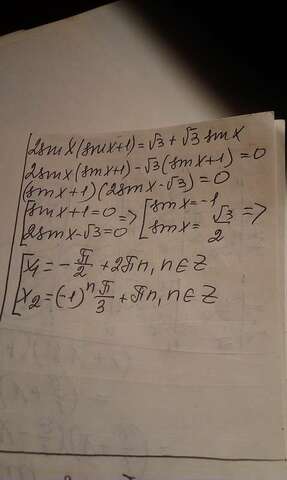 2sinx(sinx+1)=√3+√3 sinx
2sinx(sinx+1)-√3(sinx+1)=0
(sinx+1)(2sinx-√3)=0
[sinx+1=0 => [sinx=-1
2sinx-√3=0 sinx=√3/2 =>
[x₁=-π/2+2πn, n∈Z
x₂=(-1)ⁿπ/3+πn, n∈Z